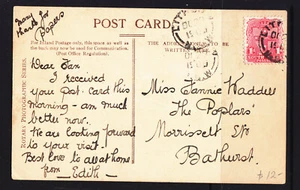 Many
thanks for
Papers
POST CARD
For Inland Postage only, this space, as well as
the back may now be used for Communication.
(Post Office Regulation).
THE ADDRESS TO BE
WRITTEN
LITHGOW
N.S.W
Dear Fan
I received
your Post Card this
morning - am much
better now.
We are looking forward
to your visit.
Best love to all at home
from _Edith_
Miss Fannie Waddell
"The Poplars"
Morrisset St
Bathurst.
ROTARY PHOTOGRAPHIC SERIES.
12-